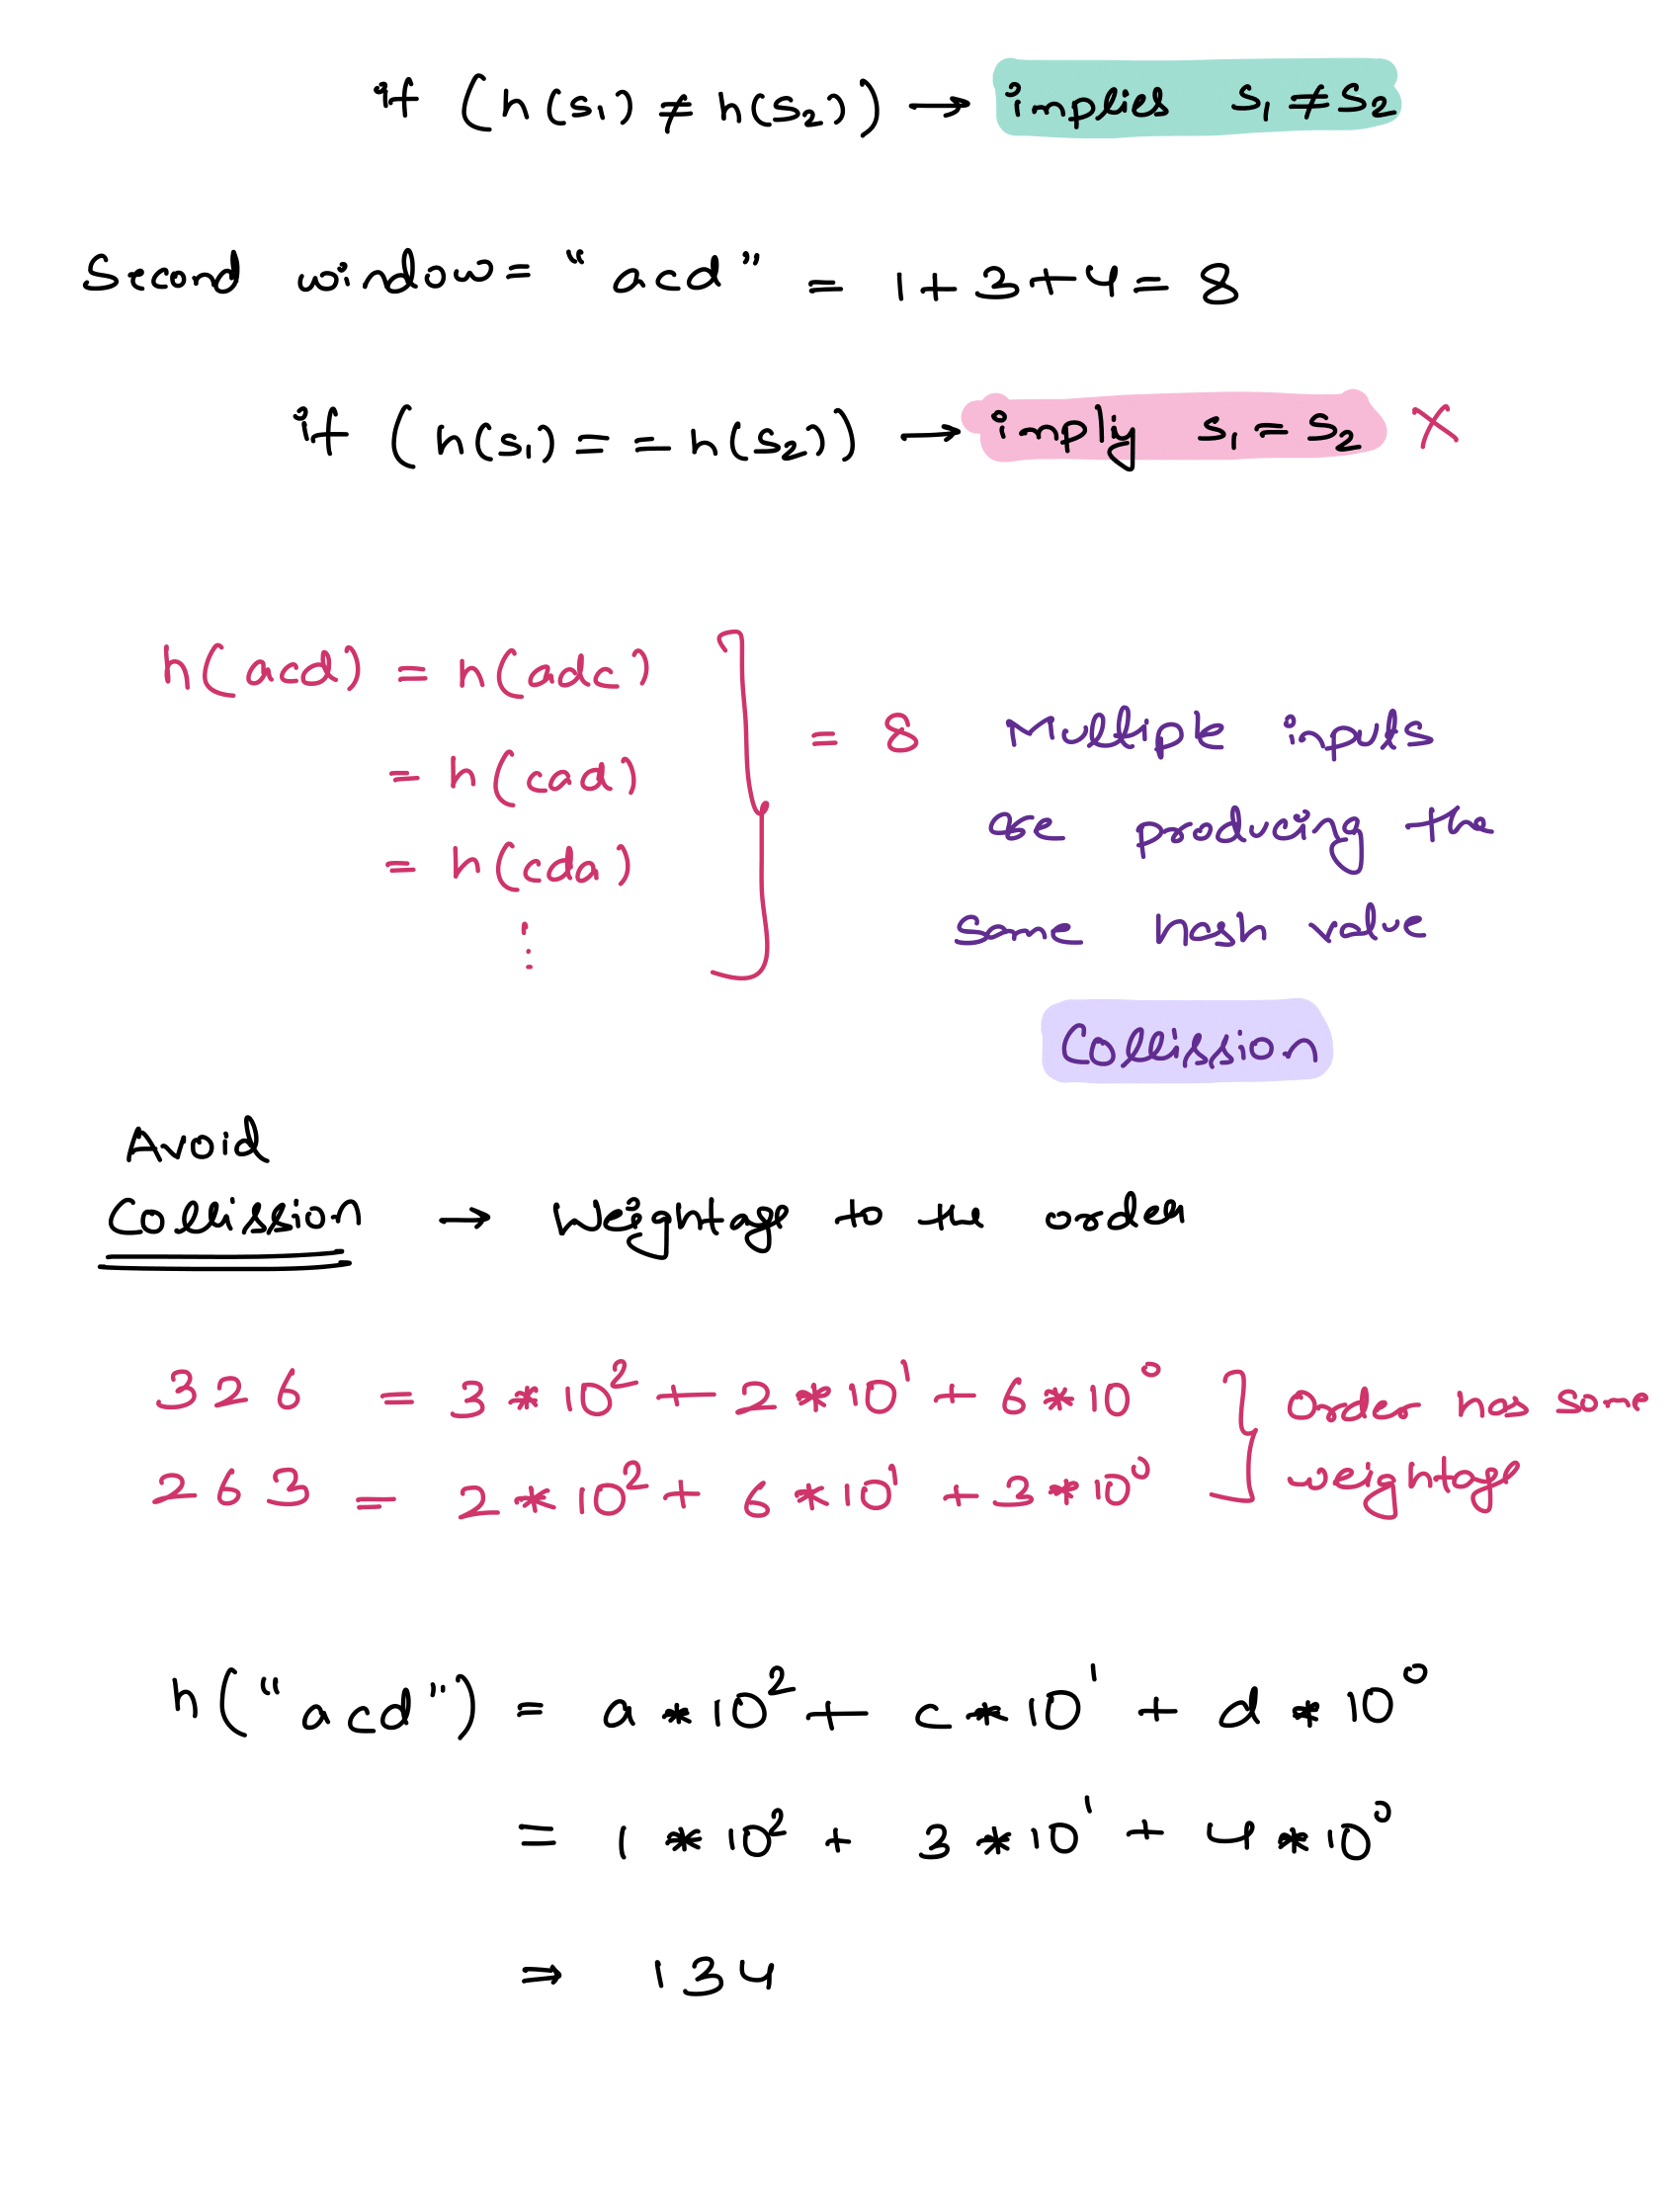 if (h(s₁) ≠ h(s₂)) → implies s₁ ≠ s₂
Second window = "acd" = 1+3+4 = 8
if (h(s₁) == h(s₂)) → imply s₁ = s₂ ✗
h(acd) = h(adc)
= h(cad)
= h(cda)
⋮
= 8 Multiple inputs
are producing the
same hash value
Collission
Avoid
Collission → Weightage to the order
326 = 3*10² + 2*10¹ + 6*10⁰
263 = 2*10² + 6*10¹ + 3*10⁰
Order has some
weightage
h("acd") = a*10² + c*10¹ + d*10⁰
= 1*10² + 3*10¹ + 4*10⁰
⇒ 134